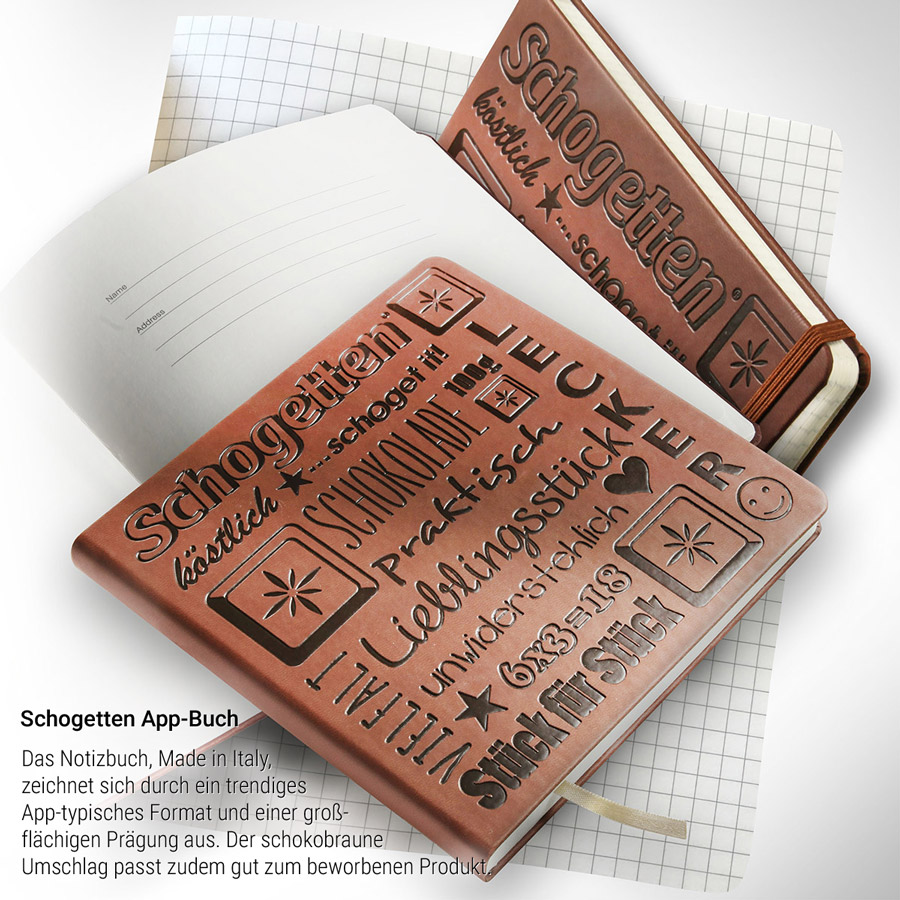 Schogetten®
köstlich
...schoget it!
Name
Address
Schogetten®
...schoget it! 100g
köstlich ★ SCHOKOLADE
LECKER
Praktisch
Lieblingsstück
unwiderstehlich
6x3=18
VIELFALT
Stück für Stück
Schogetten App-Buch
Das Notizbuch, Made in Italy,
zeichnet sich durch ein trendiges
App-typisches Format und einer groß-
flächigen Prägung aus. Der schokobraune
Umschlag passt zudem gut zum beworbenen Produkt.